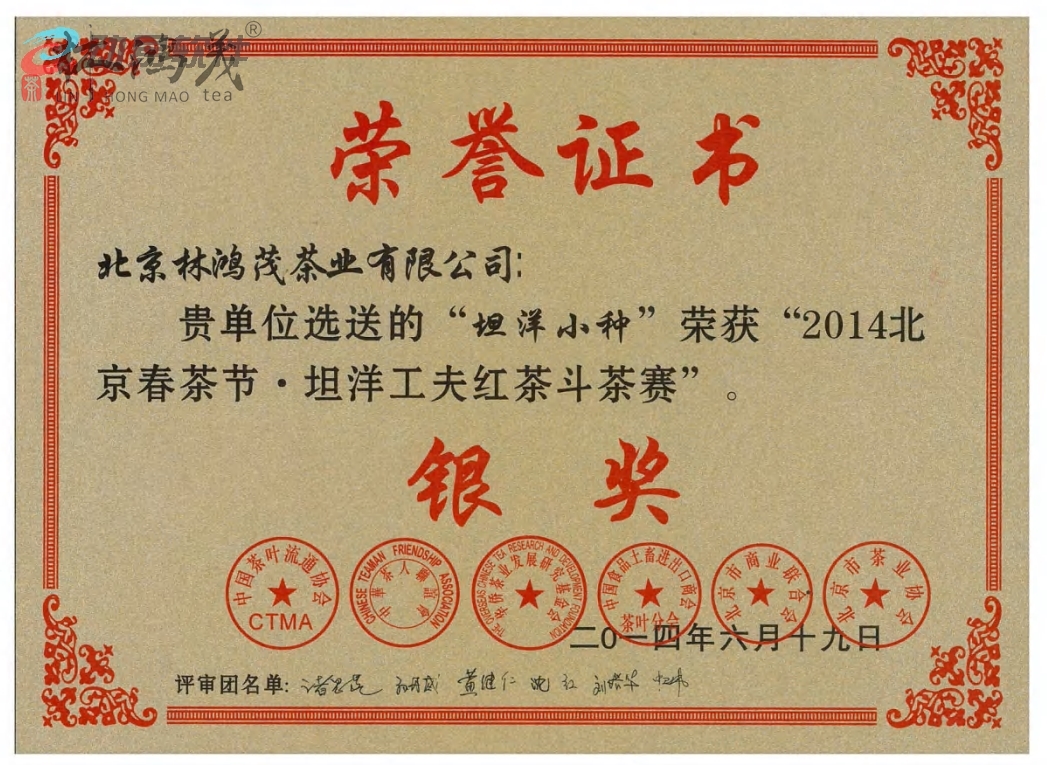 鸿茂®
HONG MAO tea
茶
荣誉证书
北京林鸿茂茶业有限公司:
贵单位选送的“坦洋小种”荣获“2014北
京春茶节·坦洋工夫红茶斗茶赛”。
银奖
中国茶叶流通协会
CTMA
CHINESE TEAMAN FRIENDSHIP ASSOCIATION
中华茶人联谊会
THE OVERSEAS CHINESE TEA RESEARCH AND DEVELOPMENT FOUNDATION
华侨茶业发展研究基金会
中国食品土畜进出口商会
茶叶分会
北京市商业联合会
北京市茶业协会
二0一四年六月十九日
评审团名单: